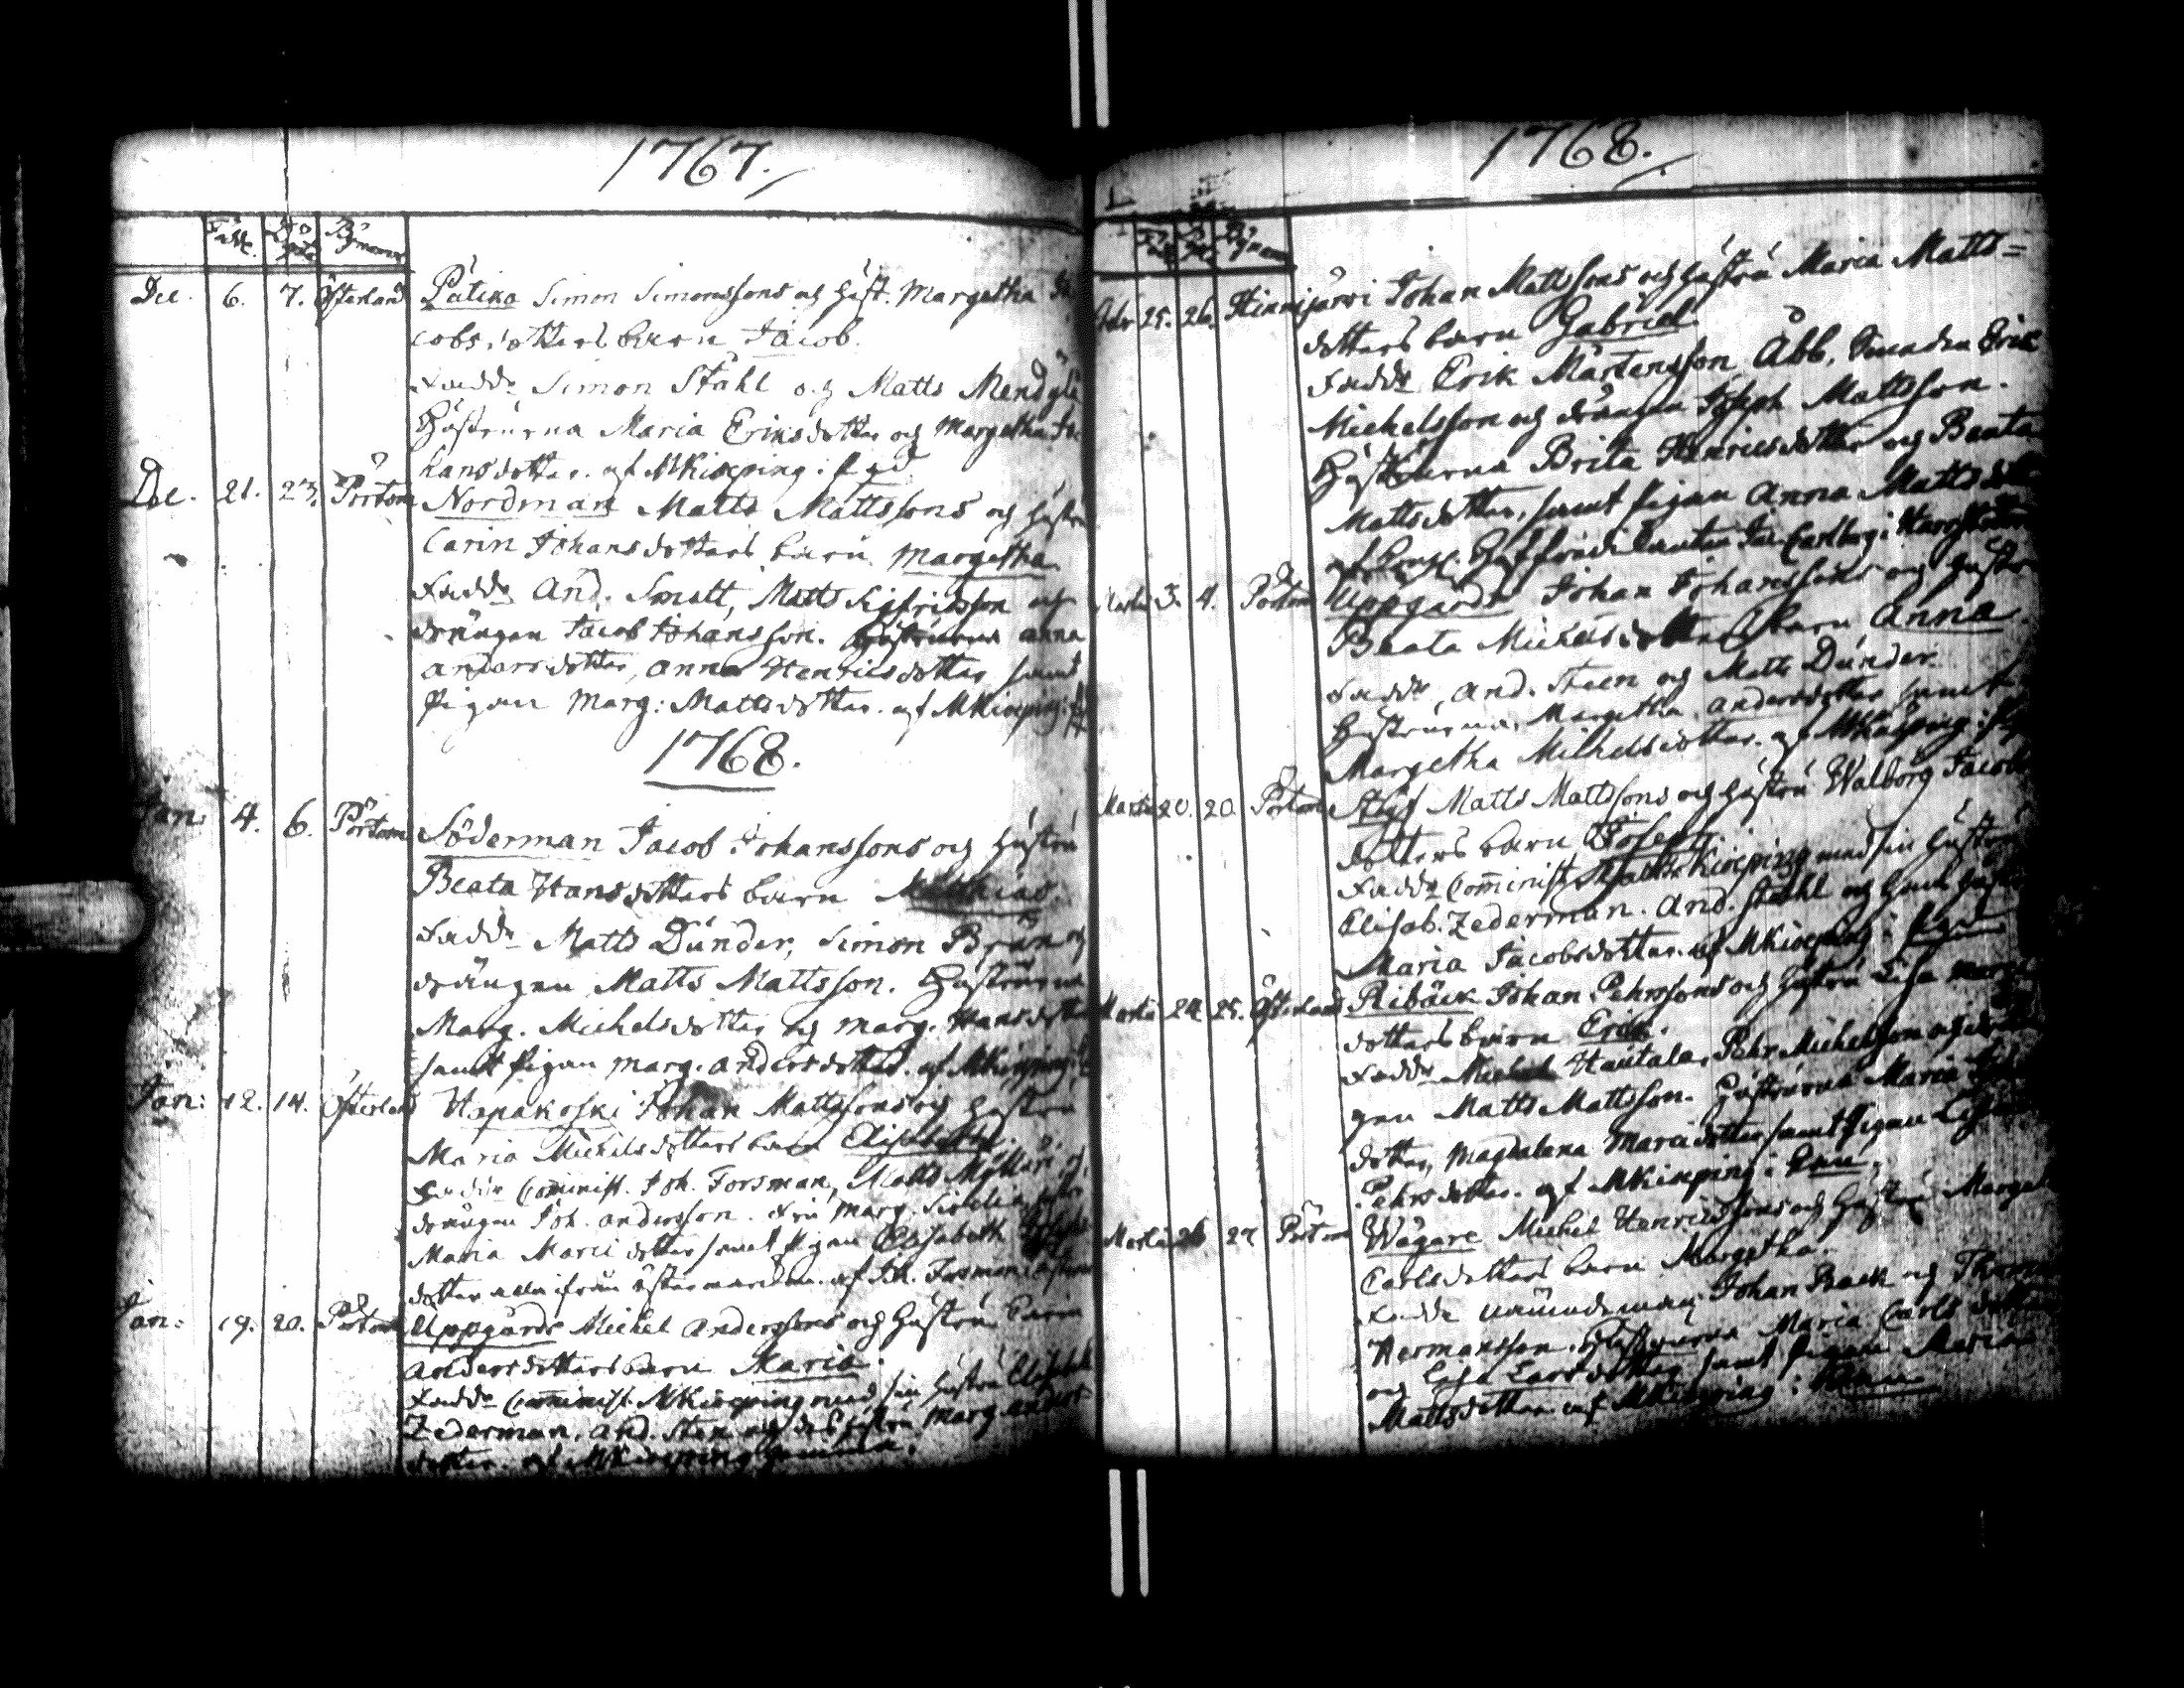 1767.
Född. Döpte Bynamn
Dec. 6. 7. Österland Pätikä Simon Simonssons och Hust. Margetha Ja
cobsdotters barn Jacob.
Faddr Simon Ståhl och Matts Mendylä
Hustrurna Maria Eriksdotter och Margetha Jo
hansdotter. af MKiöping:
Dec. 21. 23. Pörtom Nordman Matts Mattssons och Hustru
Carin Johansdotters barn Margetha
Faddr And. Smatt, Matts Sigfridsson och
drängen Jacob Johansson. Hustrurna Anna
Andersdotter, Anna Henricsdotter samt
Pigan Marg: Mattsdotter. af MKiöping:
1768.
Jan: 4. 6. Pörtom Söderman Jacob Johanssons och Hustru
Beata Hansdotters barn Matthias.
Faddr Matts Dunder, Simon Brån och
drängen Matts Mattsson. Hustrurna
Marg. Michelsdotter og Marg. Hansdotter
samt Pigan Marg. Andersdotter. af MKiöping:
Jan: 12. 14. Österland Hapakoski Johan Mattssons och Hustru
Maria Michelsdotters barn Elisabetha.
Faddr Comminist. Joh. Forsman, Matts Myllari och
drängen Joh. Andersson. Fru Marg.
Maria Marcidotter samt Pigan Elisabeth
dotter alla ifrån Östermark. af Joh. Forsman
Jan: 19. 20. Pörtom Uppgårds Michel Anderssons och Hustru Carin
Andersdotters barn Maria.
Faddr Comminist. MKiöping med sin Hustru Elisabeth
Zederman, And. Sten och des Hustru Marg. Anders
dotter. af MKiöping hemma.
1768.
Född Döpt Bynamn
Febr 25. 26. Hinnijärvi Johan Mattssons och Hustru Maria Matts=
dotters barn Gabriel.
Faddr Erik Mårtensson Åbb, Erik
Michelsson och drängen Joseph Mattsson.
Hustrurna Brita Henricsdotter og Beata
Mattsdotter, samt Pigan Anna Mattsdotter
af Carlborg i
Martii 3. 4. Pörtom Uppgårds Johan Johanssons och Hustru
Beata Michelsdotters barn Anna.
Faddr, And. Steen og Matts Dunder.
Hustrurna Margetha Andersdotter samt
Margetha Michelsdotter. af MKiöping:
Martii 20. 20 Pörtom Matts Mattssons och Hustru Walborg Jacobs
dotters barn Joseph.
Faddr Comminist. MKiöping med sin Hustru
Elisab. Zederman. And. Stohl og
Maria Jacobsdotter. af MKiöping i
Martii 24. 25. Österland Ribäck Johan Pehrssons och Hustru Lisa
dotters barn Erik.
Faddr Michel Hautala, Pehr Michelsson och drän
gen Matts Mattsson. Hustrurna Maria
dotter, Magdalena Marcidotter samt Pigan
Pehrsdotter. af MKiöping i
Martii 26 27 Pörtom Wägare Michel Henricssons och Hustru Marget
Carlsdotters barn Margetha.
Faddr Nämndeman Johan Back og
Hermansson, Hustrurna Maria Carlsdotter
og Larsdotter samt Pigan Maria
Mattsdotter af MKiöping i